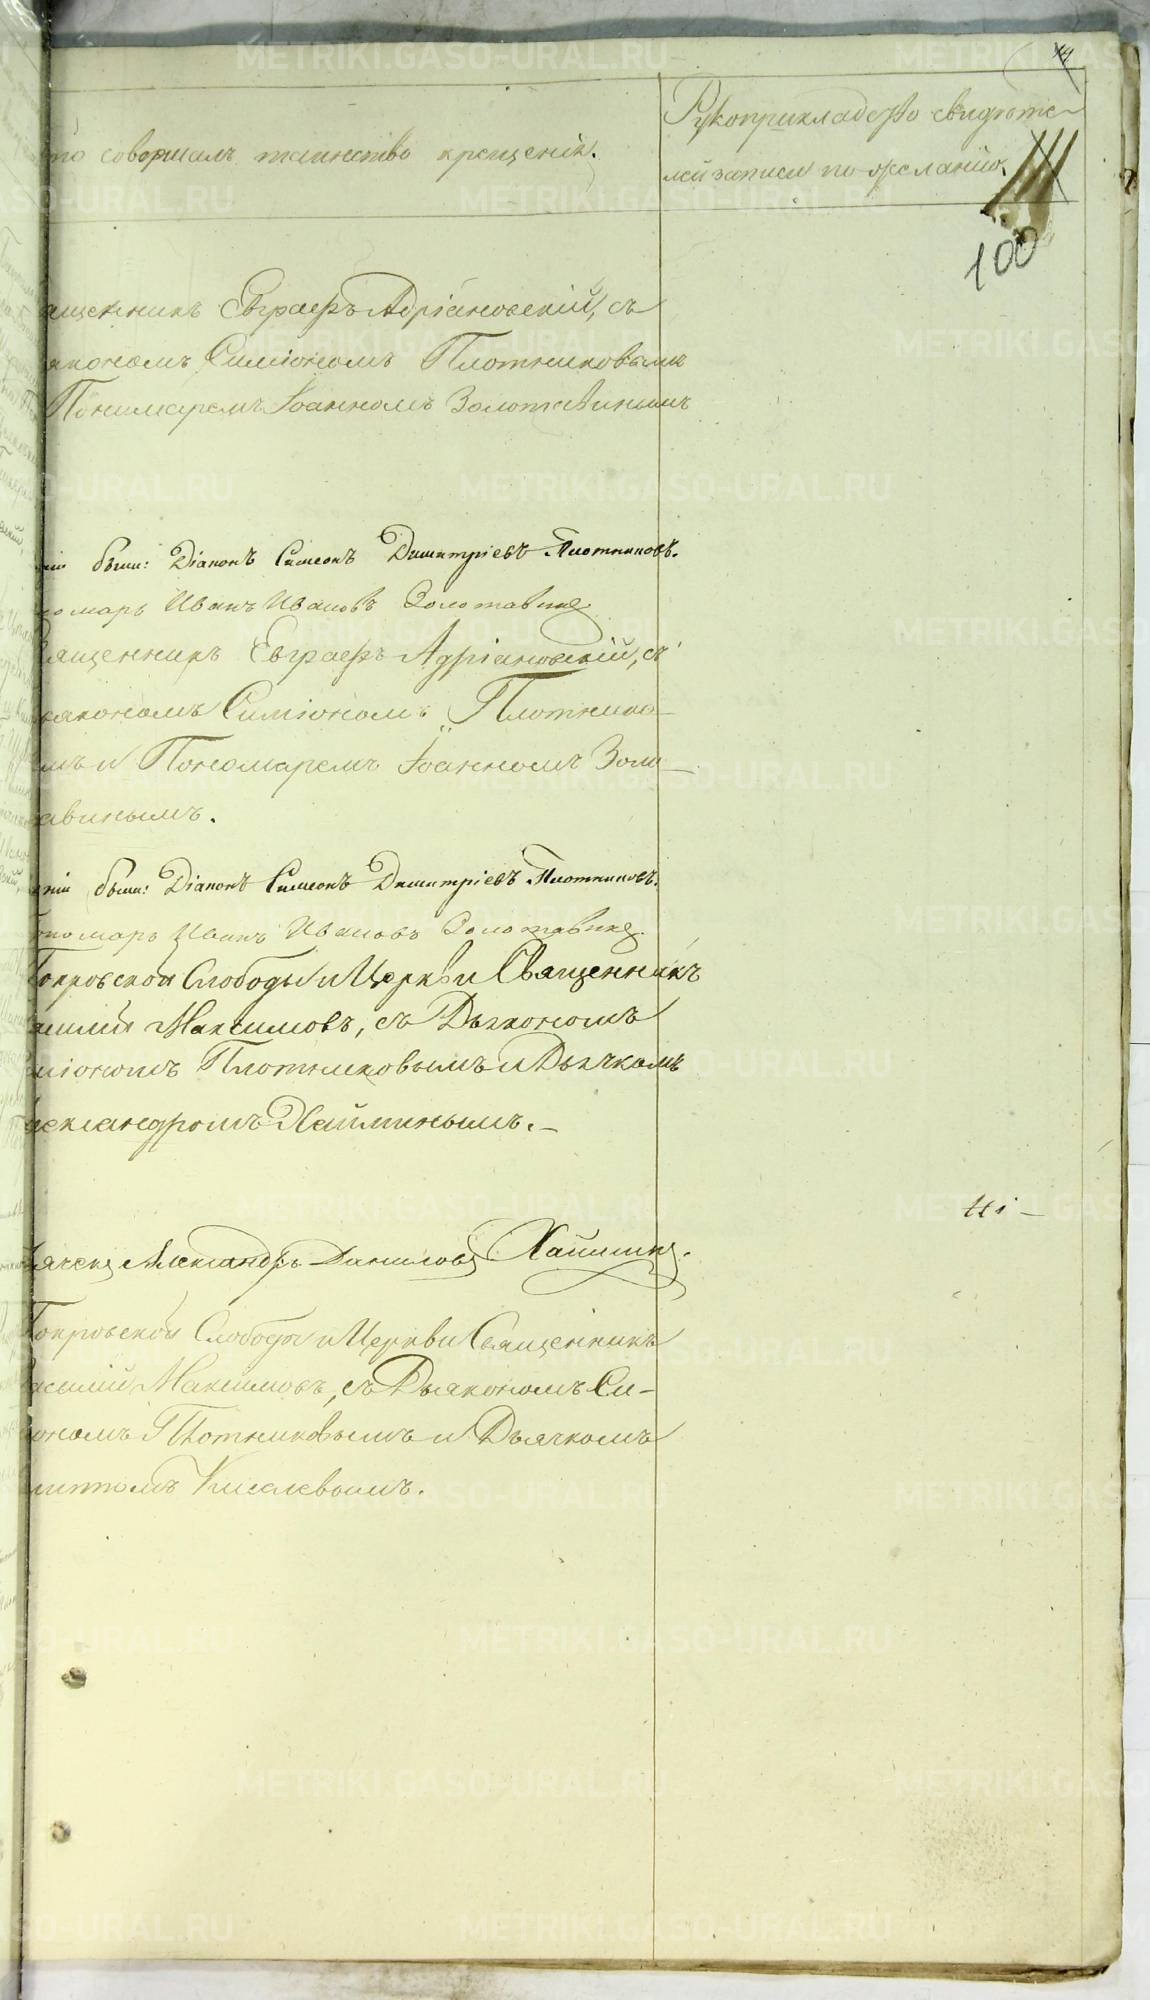 Рукоприкладство свидѣте-
то совершалъ таинство крещенія.
лей записи по желанію.
100
ященникъ Евграфъ Адріановскій, съ
якономъ Симіономъ Плотниковымъ
Пономаремъ Іоанномъ Золотавинымъ
ніи были: Діаконъ Симеонъ Димитріевъ Плотниковъ.
номарь Иванъ Ивановъ Золотавинъ
вященникъ Евграфъ Адріановскій, съ
іякономъ Симіономъ Плотнико-
мъ и Пономаремъ Іоанномъ Золо-
авинымъ.
ніи были: Діаконъ Симеонъ Димитріевъ Плотниковъ.
ономарь Иванъ Ивановъ Золотавинъ
Покровской Слободы и Церкви Священникъ
асилій Максимовъ, съ Дьякономъ
иміономъ Плотниковымъ и Дьячкомъ
лександромъ Хайминымъ. —
ьячекъ Александръ Даниловъ Хайминъ.
Покровской Слободы и Церкви Священникъ
асилій Максимовъ, съ Дьякономъ Си-
іономъ Плотниковымъ и Дьячкомъ
питомъ Киселевымъ.
METRIKI.GASO-URAL.RU